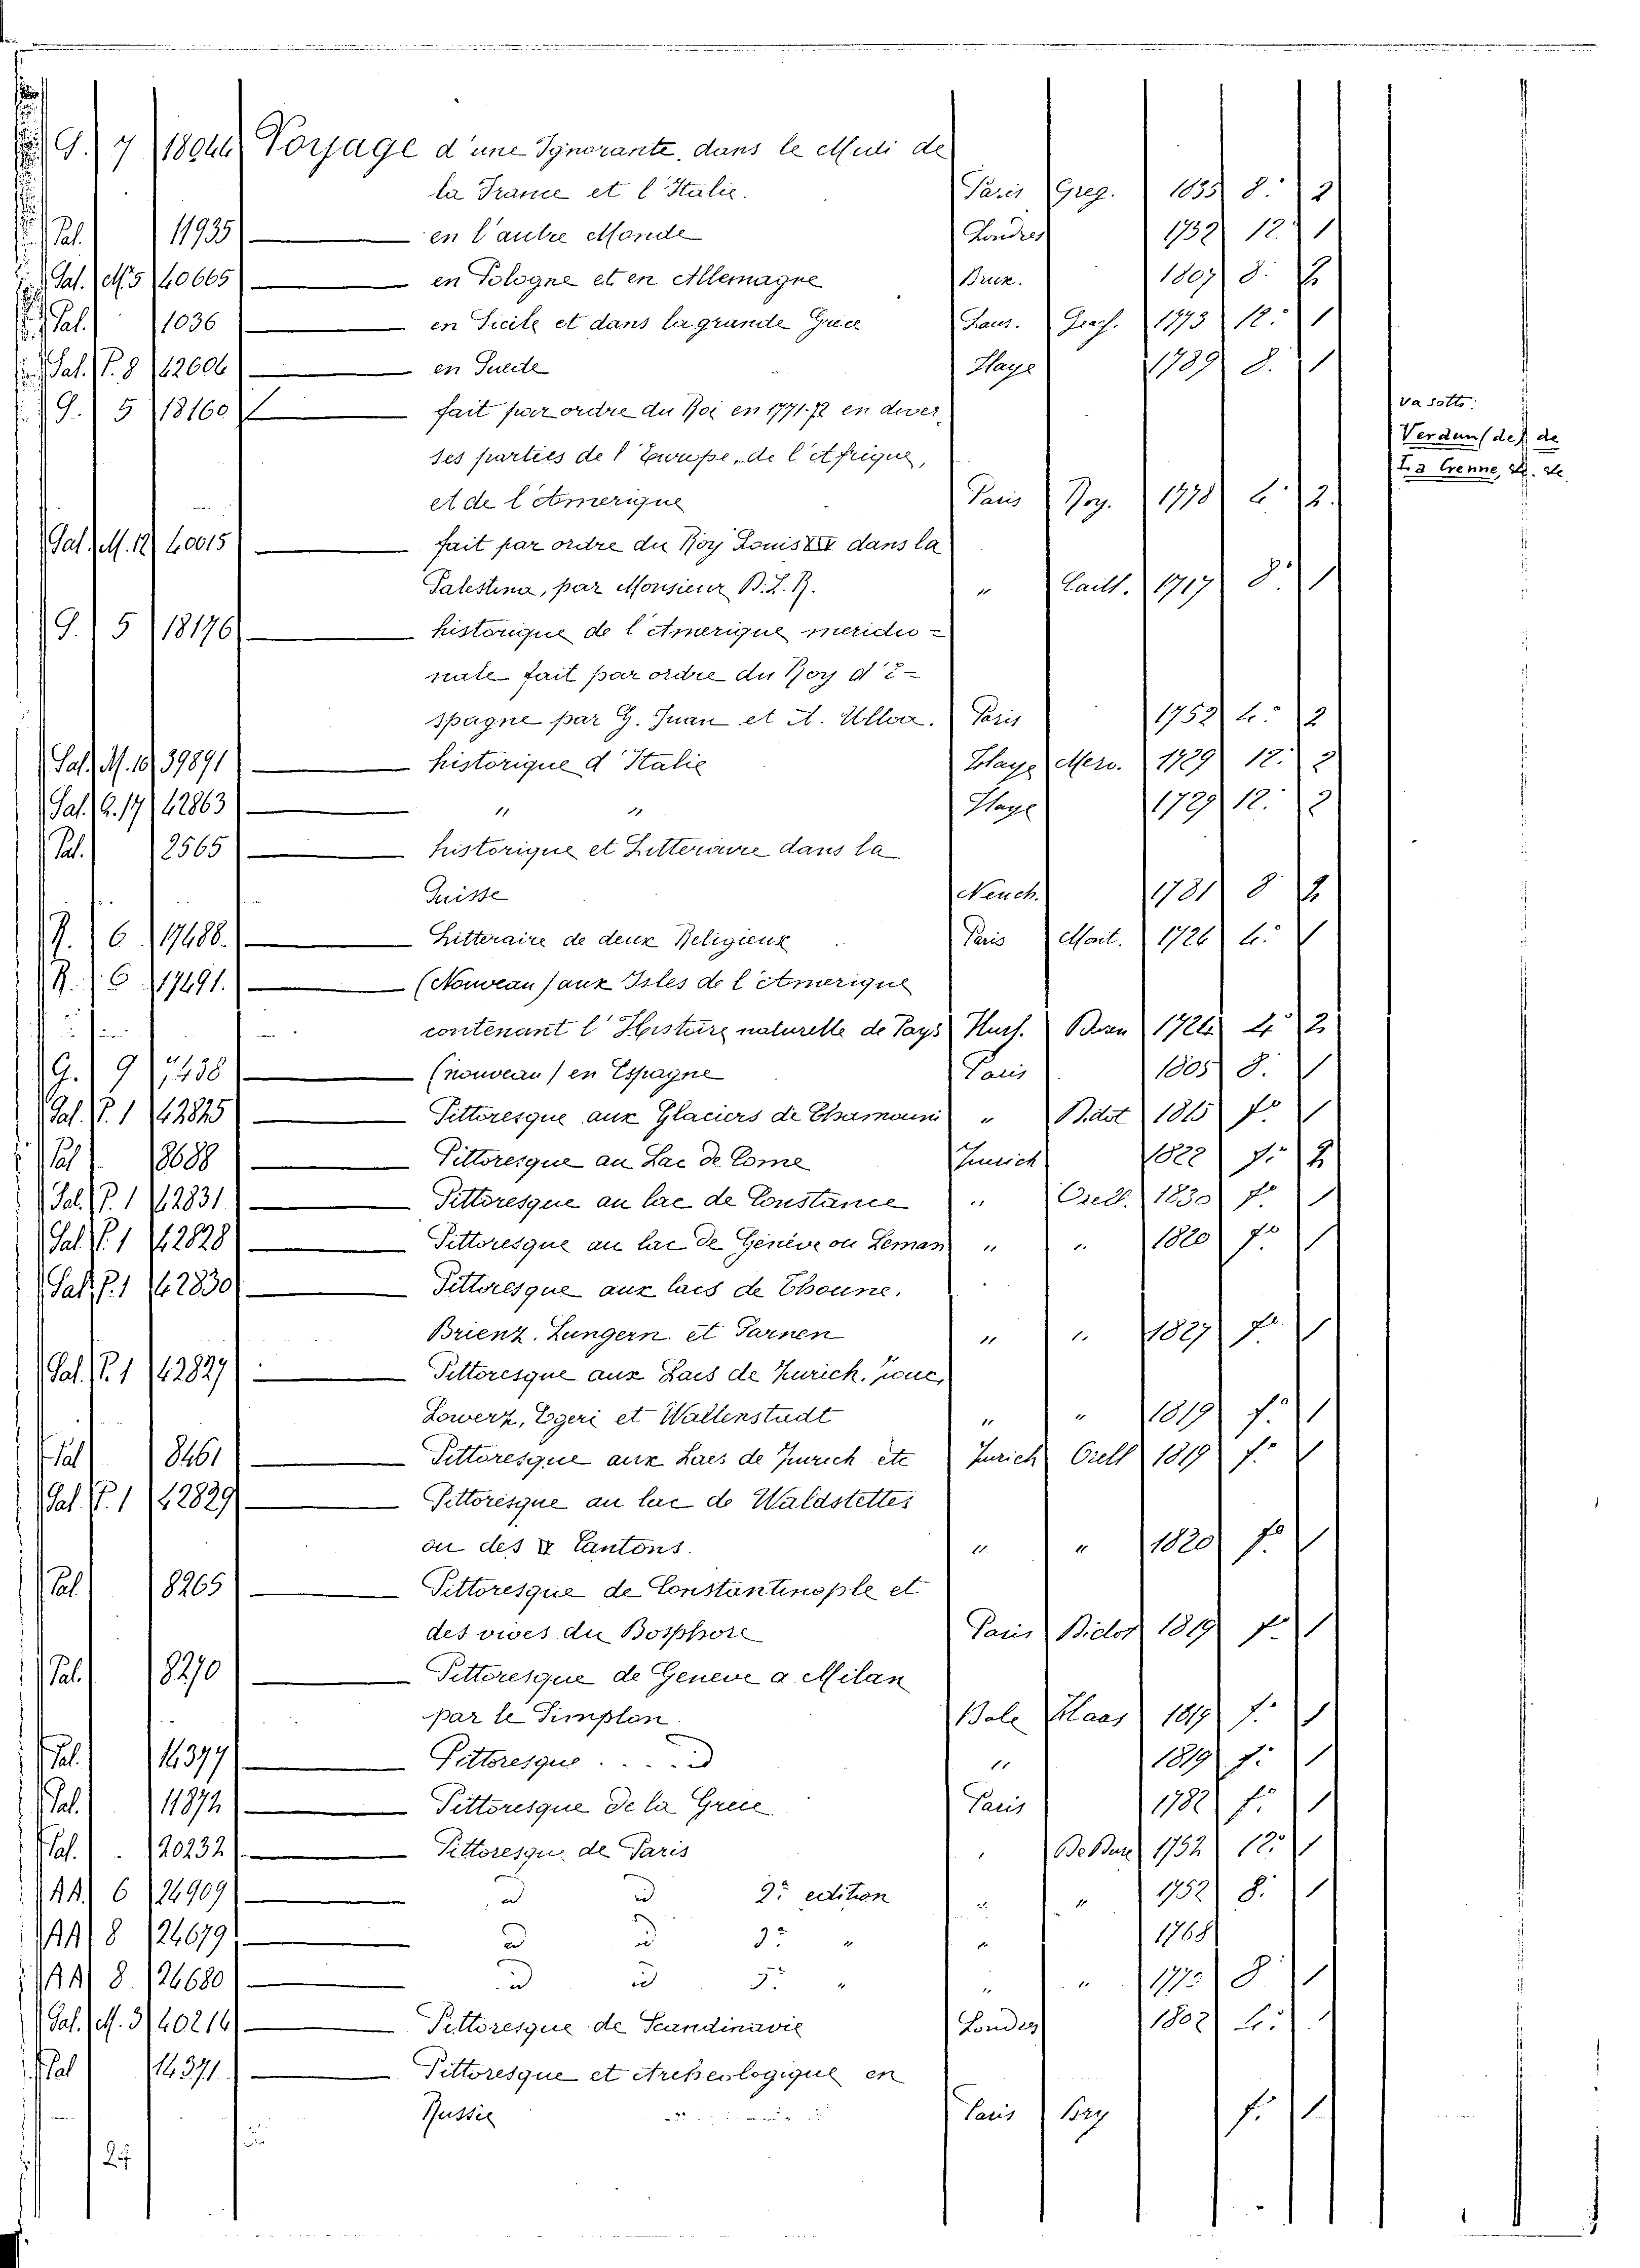 G. 7 18044 Voyage d'une Ignorante, dans le Midi de
la France et l'Italie. Paris Greg. 1835 8. 2
Pal. 11935 — en l'autre Monde Londres 1752 12. 1
Sal. M. 5 40665 — en Pologne et en Allemagne Brux. 1807 8. 2
Pal. 1036 — en Sicile et dans la grande Grece Laus. Grass. 1773 12. 1
Sal. P. 8 42606 — en Suede Haye 1789 8. 1
G. 5 18160 — fait par ordre du Roi en 1771.72 en diver
ses parties de l'Europe, de l'Afrique,
et de l'Amerique Paris Roy. 1778 4. 2.
va sotto:
Verdun (de) de
La Crenne, &. &c
Sal. M. 12 40015 — fait par ordre du Roy Louis XIV dans la
Palestina, par Monsieur D. L. R. " Caill. 1717 8. 1
G. 5 18176 — historique de l'Amerique meridio =
nale fait par ordre du Roy d'E =
spagne par G. Juan et A. Ulloa. Paris 1752 4. 2
Sal. M. 10 39891 — historique d'Italie Haye Merv. 1729 12. 2
Sal. Q. 17 42863 — " " Haye 1729 12. 2
Pal. 2565 — historique et Litteraire dans la
Suisse Neuch. 1781 8 2
R. 6 17488. — Litteraire de deux Religieux Paris Mont. 1726 4. 1
R. 6 17491. — (Nouveau) aux Isles de l'Amerique
contenant l'Histoire naturelle de Pays Huss. 1724 4. 2
G. 9 7438 — (nouveau) en Espagne Paris 1805 8. 1
Sal. P. 1 42825 — Pittoresque aux Glaciers de Chamouni " Didot 1815 f. 1
Pal. 8688 — Pittoresque au Lac de Come Zurich 1822 f. 2
Sal. P. 1 42831 — Pittoresque au lac de Constance " Orell. 1830 f. 1
Sal. P. 1 42828 — Pittoresque au lac de Genève ou Leman " " 1820 f. 1
Sal. P. 1 42830 — Pittoresque aux lacs de Thoune,
Brienz. Lungern et Sarnen " " 1827 f. 1
Sal. P. 1 42827 — Pittoresque aux Lacs de Zurich, Zoue,
Lowerz, Egeri et Wallenstadt " " 1819 f. 1
Pal. 8461 — Pittoresque aux Lacs de Zurich etc Zurich Orell 1819 f. 1
Sal. P. 1 42829 — Pittoresque au lac de Waldstettes
ou des IV Cantons. " " 1820 f. 1
Pal. 8265 — Pittoresque de Constantinople et
des rives du Bosphore Paris Didot 1819 f. 1
Pal. 8270 — Pittoresque de Geneve a Milan
par le Simplon. Bale Haas 1819 f. 1
Pal. 14377 — Pittoresque .... id " 1819 f. 1
Pal. 11872 — Pittoresque de la Grece Paris 1782 f. 1
Pal. 20232 — Pittoresqu. de Paris " De Bure 1752 12. 1
AA. 6 24909 — id id 2. edition " " 1752 8. 1
AA 8 24679 — id id 3. " " 1768
AA 8. 24680 — id id 5. " " " 1770 8 1
Sal. M. 3 40214 — Pittoresque de Scandinavie Londres 1802 4. 1
Pal 14371. — Pittoresque et Archeologique en
Russie Paris Bry f. 1